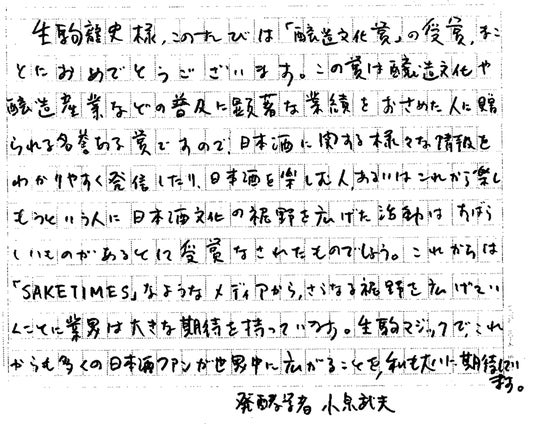 生駒龍史様、このたびは「醸造文化賞」の受賞、まこ
とにおめでとうございます。この賞は醸造文化や
醸造産業などの普及に顕著な業績をおさめた人に贈
られる名誉ある賞ですので、日本酒に関する様々な情報を
わかりやすく発信したり、日本酒を楽しむ人、あるいはこれから楽し
もうという人に日本酒文化の裾野を広げた活動はすばら
しいものがあるとして受賞なされたものでしょう。これからは
「SAKETIMES」なようなメディアから、さらなる裾野を広げ
ことに業界は大きな期待を持っています。生駒マジックで、これ
からも多くの日本酒ファンが世界中に広がることを、私も大いに期待してい
ます。
発酵学者 小泉武夫